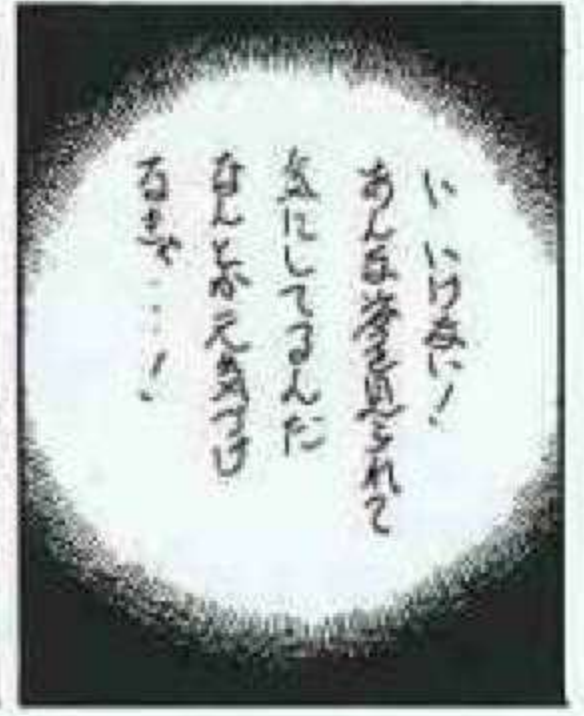 い いけない!
あんな姿を見られて
気にしてるんだ
なんとか元気づけ
なきゃ…!